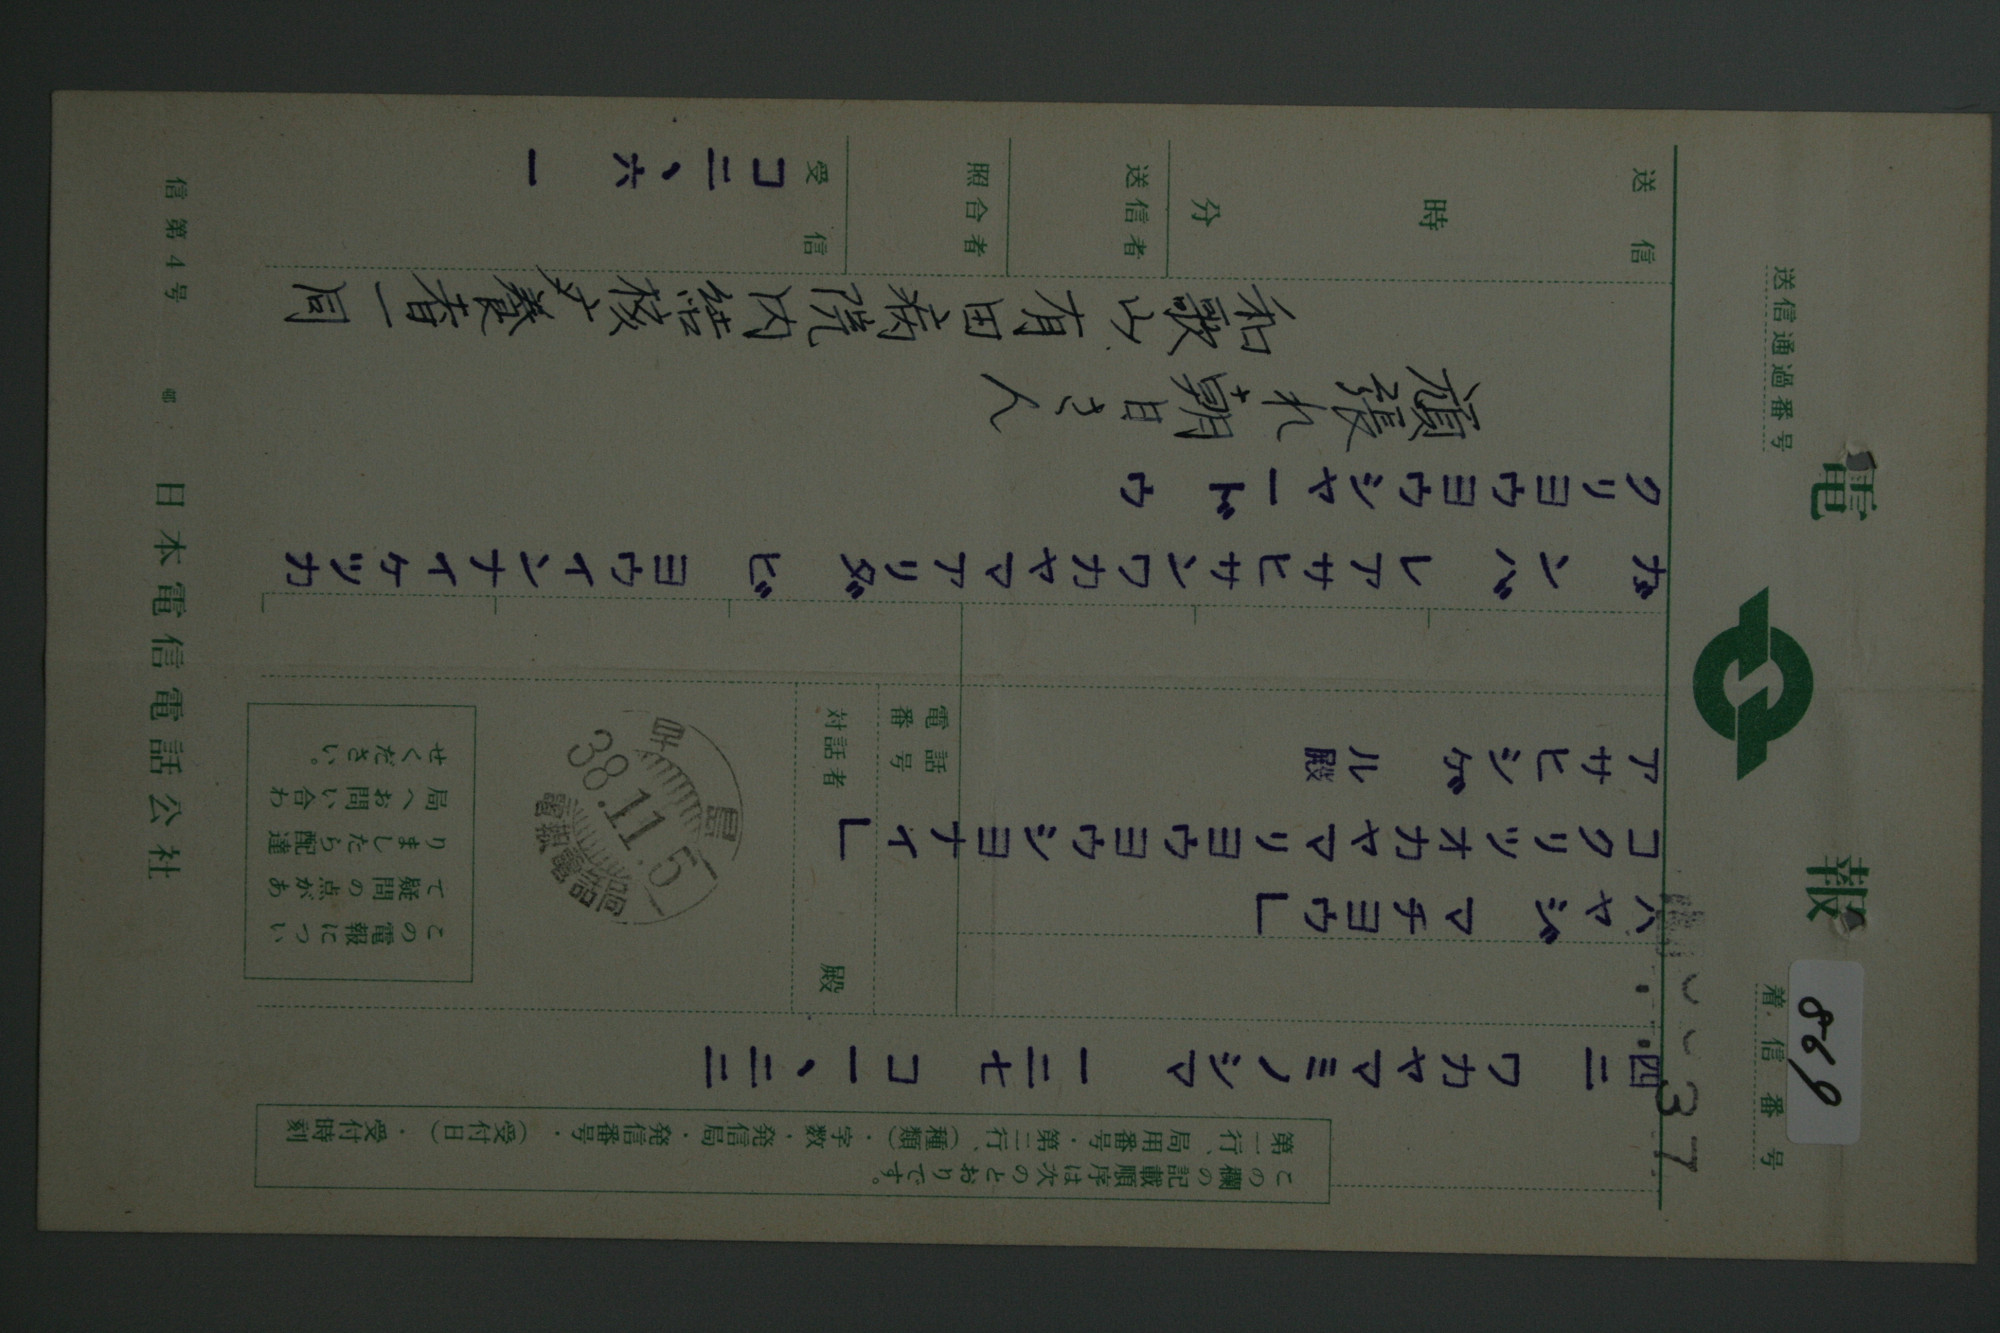 電報
着信番号
869
送信通過番号
37
この欄の記載順序は次のとおりです。
第一行、局用番号・第二行、(種類)・字数・発信局・発信番号・(受付日)・受付時刻
四二 ワカヤマミノシマ 一二七 コ一、二二
ハヤジ マチヨウ」
コクリツオカヤマリヨウヨウシヨナイ」
アサヒシゲ ル殿
電話番号
対話者 殿
38.11.5
電報電話局
この電報について疑問の点がありましたら配達局へお問い合わせください。
ガ ンバ レアサヒサンワカヤマアリダ ビ ヨウインナイケツカ
クリヨウヨウシヤ一ド ウ
頑張れ朝日さん
和歌山有田病院内結核療養者一同
送信
時 分
送信者
照合者
受信
コ二、六一
信第4号
日本電信電話公社